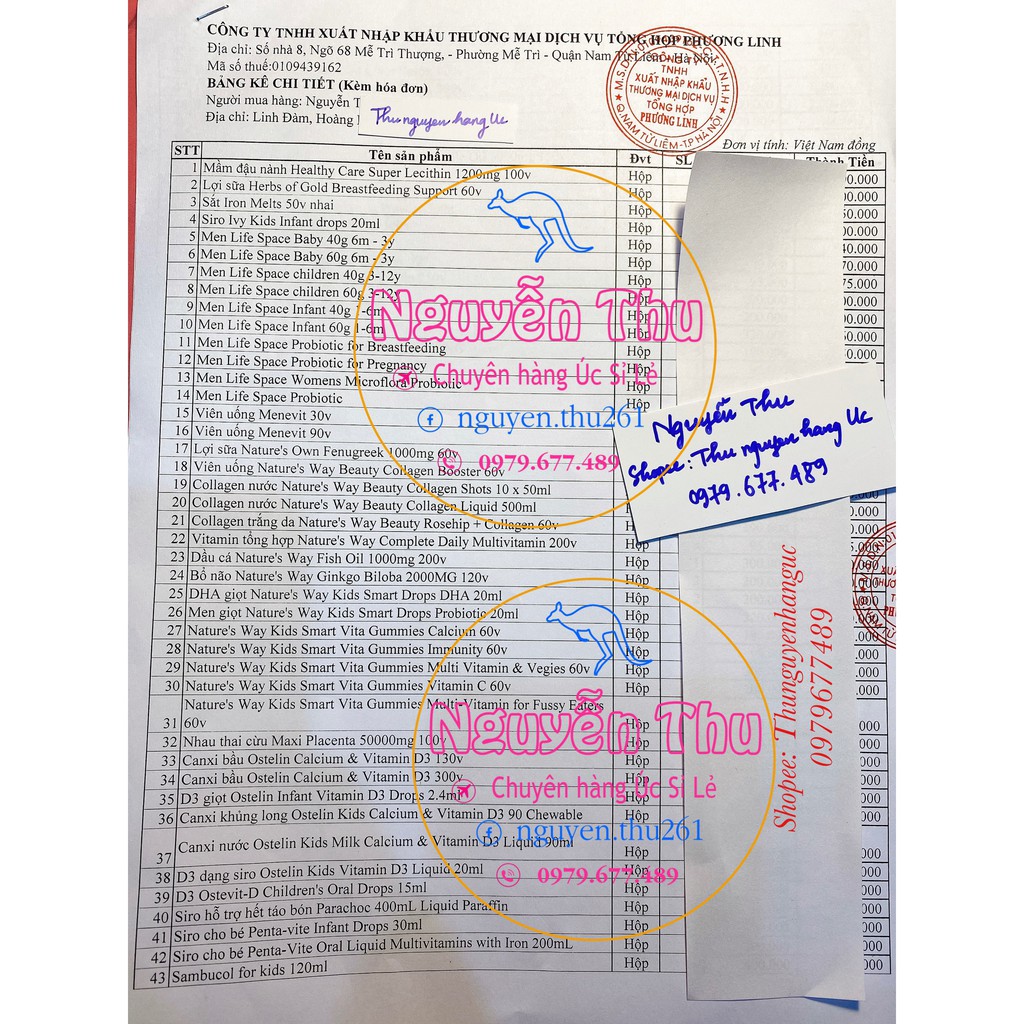 CÔNG TY TNHH XUẤT NHẬP KHẨU THƯƠNG MẠI DỊCH VỤ TỔNG HỢP PHƯƠNG LINH
Địa chỉ: Số nhà 8, Ngõ 68 Mễ Trì Thượng, - Phường Mễ Trì - Quận Nam Từ Liêm - Hà Nội
Mã số thuế:0109439162
BẢNG KÊ CHI TIẾT (Kèm hóa đơn)
Người mua hàng: Nguyễn T
Địa chỉ: Linh Đàm, Hoàng
Thu nguyen hang Uc
CÔNG TY
TNHH
XUẤT NHẬP KHẨU
THƯƠNG MẠI DỊCH VỤ
TỔNG HỢP
PHƯƠNG LINH
Q.NAM TỪ LIÊM-T.P HÀ NỘI
Đơn vị tính: Việt Nam đồng
STT Tên sản phẩm Đvt SL Thành Tiền
1 Mầm đậu nành Healthy Care Super Lecithin 1200mg 100v Hộp
2 Lợi sữa Herbs of Gold Breastfeeding Support 60v Hộp
3 Sắt Iron Melts 50v nhai Hộp
4 Siro Ivy Kids Infant drops 20ml Hộp
5 Men Life Space Baby 40g 6m - 3y Hộp
6 Men Life Space Baby 60g 6m - 3y Hộp
7 Men Life Space children 40g 3-12y Hộp
8 Men Life Space children 60g 3-12y Hộp
9 Men Life Space Infant 40g 1-6m Hộp
10 Men Life Space Infant 60g 1-6m Hộp
11 Men Life Space Probiotic for Breastfeeding Hộp
12 Men Life Space Probiotic for Pregnancy Hộp
13 Men Life Space Womens Microflora Probiotic Hộp
14 Men Life Space Probiotic Hộp
15 Viên uống Menevit 30v
16 Viên uống Menevit 90v
17 Lợi sữa Nature's Own Fenugreek 1000mg 60v
18 Viên uống Nature's Way Beauty Collagen Booster 60v
19 Collagen nước Nature's Way Beauty Collagen Shots 10 x 50ml
20 Collagen nước Nature's Way Beauty Collagen Liquid 500ml
21 Collagen trắng da Nature's Way Beauty Rosehip + Collagen 60v
22 Vitamin tổng hợp Nature's Way Complete Daily Multivitamin 200v Hộp
23 Dầu cá Nature's Way Fish Oil 1000mg 200v Hộp
24 Bổ não Nature's Way Ginkgo Biloba 2000MG 120v Hộp
25 DHA giọt Nature's Way Kids Smart Drops DHA 20ml Hộp
26 Men giọt Nature's Way Kids Smart Drops Probiotic 20ml Hộp
27 Nature's Way Kids Smart Vita Gummies Calcium 60v Hộp
28 Nature's Way Kids Smart Vita Gummies Imunity 60v Hộp
29 Nature's Way Kids Smart Vita Gummies Multi Vitamin & Vegies 60v Hộp
30 Nature's Way Kids Smart Vita Gummies Vitamin C 60v Hộp
Nature's Way Kids Smart Vita Gummies Multi-Vitamin for Fussy Eaters
31 60v Hộp
32 Nhau thai cừu Maxi Placenta 50000mg 100v Hộp
33 Canxi bầu Ostelin Calcium & Vitamin D3 130v Hộp
34 Canxi bầu Ostelin Calcium & Vitamin D3 300v Hộp
35 D3 giọt Ostelin Infant Vitamin D3 Drops 2.4ml Hộp
36 Canxi khủng long Ostelin Kids Calcium & Vitamin D3 90 Chewable Hộp
37 Canxi nước Ostelin Kids Milk Calcium & Vitamin D3 Liquid 90ml Hộp
38 D3 dạng siro Ostelin Kids Vitamin D3 Liquid 20ml Hộp
39 D3 Ostevit-D Children's Oral Drops 15ml Hộp
40 Siro hỗ trợ hết táo bón Parachoc 400mL Liquid Paraffin Hộp
41 Siro cho bé Penta-vite Infant Drops 30ml Hộp
42 Siro cho bé Penta-vite Oral Liquid Multivitamins with Iron 200mL Hộp
43 Sambucol for kids 120ml Hộp
Nguyễn Thu
Chuyên hàng Úc Sỉ Lẻ
nguyen.thu261
0979.677.489
Nguyễn Thu
Shopee: Thu nguyen hang Uc
0979.677.489
Nguyễn Thu
Chuyên hàng Úc Sỉ Lẻ
nguyen.thu261
0979.677.489
Shopee: Thunguyenhanguc
0979677489